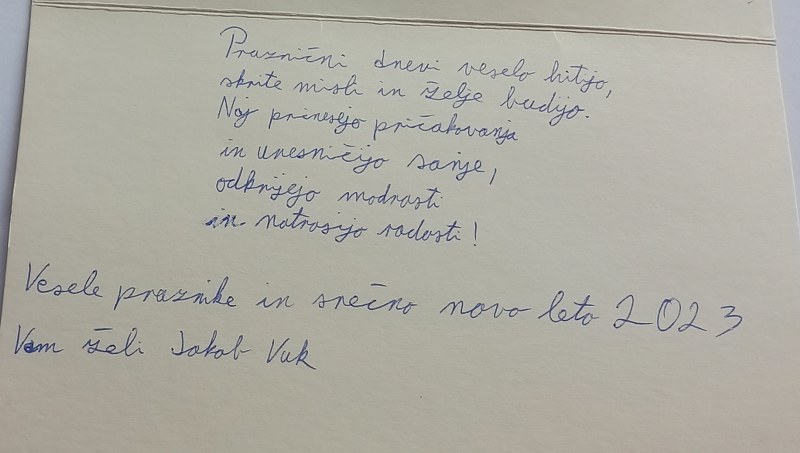 Praznični dnevi veselo hitijo,
skrite misli in želje budijo.
Naj prinesejo pričakovanja
in uresničijo sanje,
odkrijejo modrosti
in natrosijo radosti!
Vesele praznike in srečno novo leto 2023
Vam želi Jakob Vuk